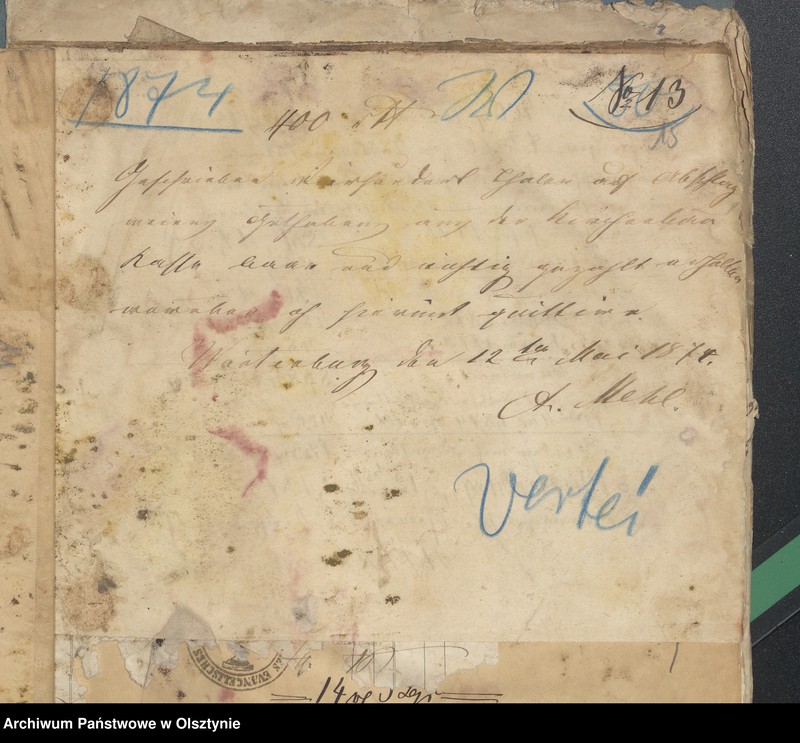 1874
400 Rth
No 13
15
Geschrieben Vierhundert Thaler auf Abschlag
meines Guthabens aus der Kirchenbau
Kasse baar und richtig gezahlt erhalten
worüber ich hiermit quittire.
Wartenburg den 12ten Mai 1874.
A. Mehl.
vertei
EVANGELISCHES
14
Archiwum Państwowe w Olsztynie